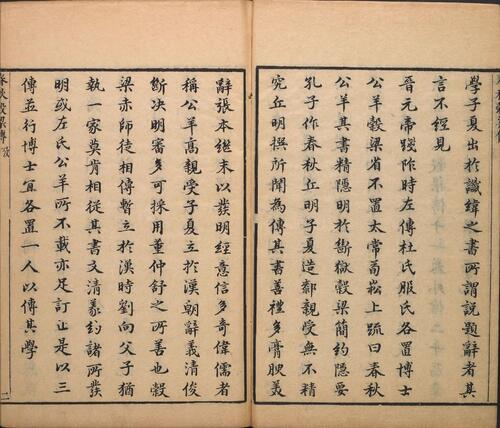 學子夏出於讖緯之書所謂說題辭者其
言不經見
晉元帝踐阼時左傳杜氏服氏各置博士
公羊穀梁省不置太常荀崧上疏曰春秋
公羊其書精隱明於斷獄穀梁簡約隱要
孔子作春秋丘明子夏造鄰親受無不精
究丘明撰所聞為傳其書善禮多膏腴美
辭張本繼末以發明經意信多奇偉儒者
稱公羊高親受子夏立於漢朝辭義清俊
斷决明審多可採用董仲舒之所善也穀
梁赤師徒相傳暫立於漢時劉向父子猶
執一家莫肯相從其書文清義約諸所發
明或左氏公羊所不載亦足訂正是以三
傳並行博士宜各置一人以傳其學
春秋穀梁傳攷
二